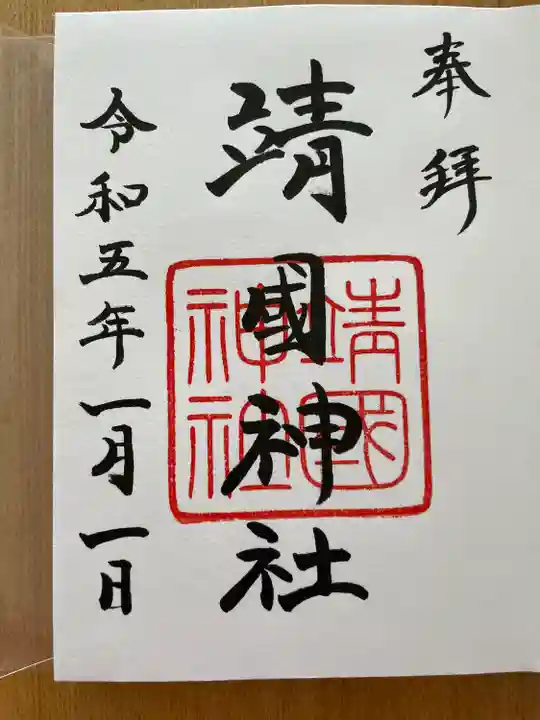 奉拜
靖國神社
靖國
神社
令和五年一月一日